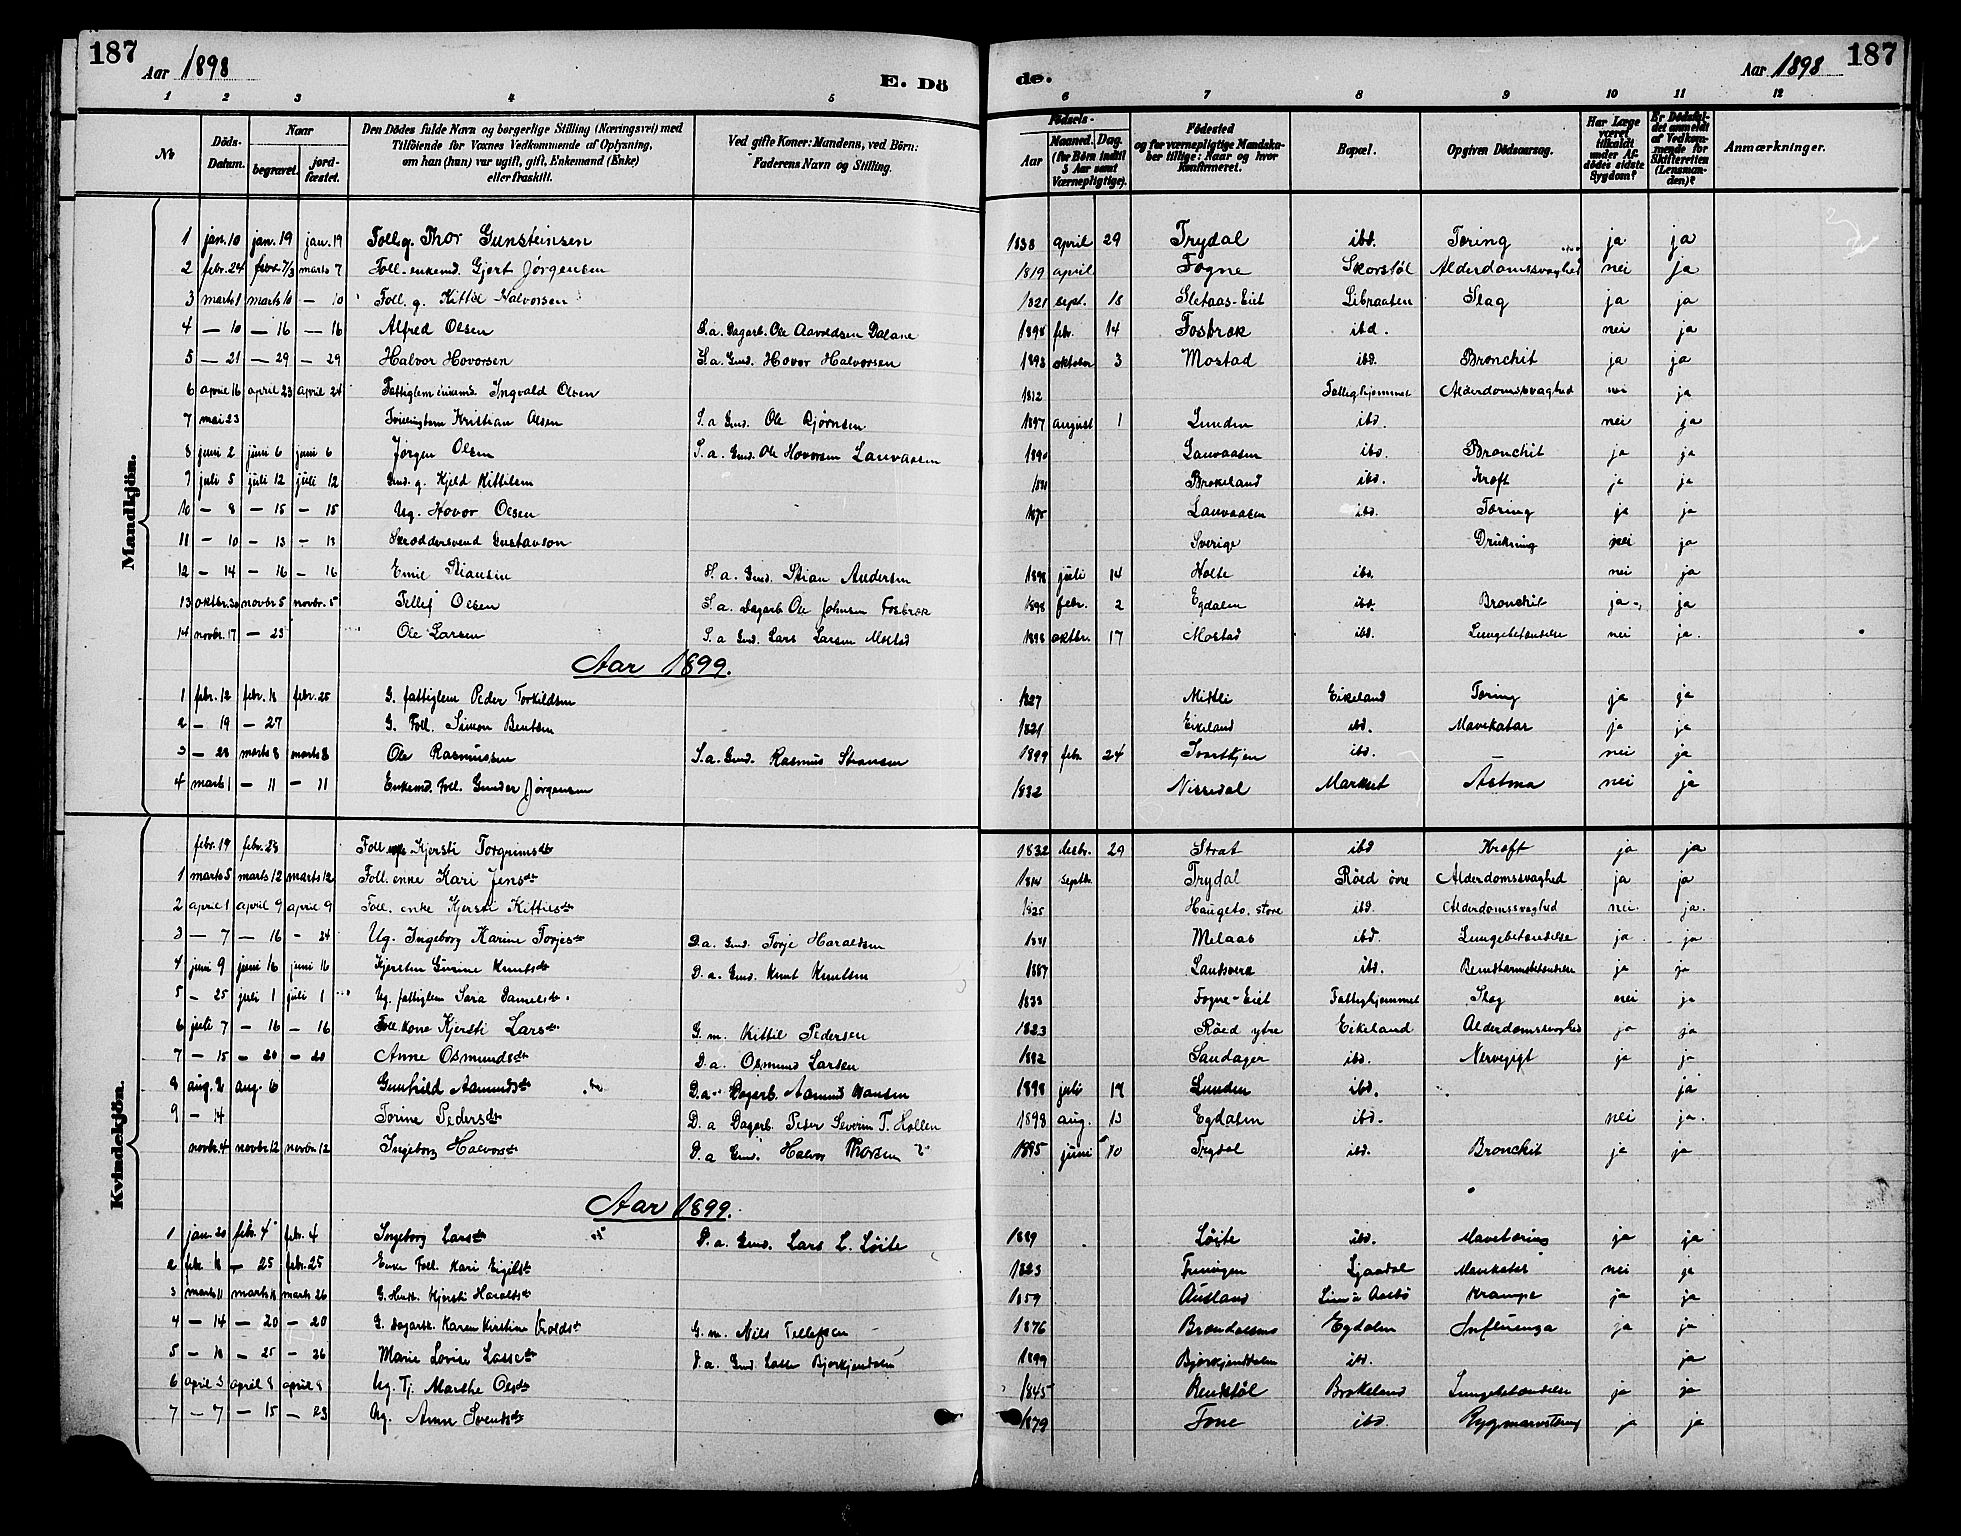 187
Aar 1898
E. Dö
de.
Aar 1898
187
1 2 3 4 5 6 7 8 9 10 11 12
No
Döds-Datum.
Naar
begravet.
jord-fæstet.
Den Dödes fulde Navn og borgerlige Stilling (Næringsvei) med Tilföiende for Voxnes Vedkommende af Oplysning, om han (hun) var ugift, gift, Enkemand (Enke) eller fraskilt.
Ved gifte Koner: Mandens, ved Börn: Faderens Navn og Stilling.
Födsels-
Aar
Maaned. Dag.
(for Börn indtil 5 Aar samt Værnepligtige).
Födested og for værnepligtige Mandskaber tillige: Naar og hvor Konfirmeret.
Bopæl.
Opgiven Dödsaarsag.
Har Læge været tilkaldt under Afdödes sidste Sygdom?
Er Dödsfaldet anmeldt af Vedkommende for Skifteretten (Lensmanden)?
Anmærkninger.
Mandkjön.
1 jan. 10 jan. 19 jan. 19 Follg. Thor Gunsteinsen 1838 april 29 Trydal ibd. Tæring ja ja
2 febr. 24 febr. 7/3 marts 7 Foll. enkemd. Gjert Jørgensen 1819 april Fogne Skorstøl Alderdomssvaghed nei ja
3 marts 1 marts 10 — 10 Foll. g. Kittil Halvorsen 1821 sept. 18 Sletaas-Eiet Libraaten Slag ja ja
4 — 10 — 16 — 16 Alfred Olsen S. a. Dagarb. Ole Aavoldsen Dalane 1898 febr. 14 Fosbræk ibd. nei ja
5 — 21 — 29 — 29 Halvor Hovorsen S. a. Gmd. Hovor Halvorsen 1893 oktober 3 Mostad ibd. Bronchit ja ja
6 april 16 april 23 april 24 Fattiglem enkemd. Ingvald Olsen 1812 Fattighjemmet Alderdomssvaghed nei ja
7 mai 23 Tvillingbarn Kristian Olsen S. a. Gmd. Ole Bjørnsen 1897 august 1 Lunden ibd. nei ja
8 juni 2 juni 6 juni 6 Jørgen Olsen S. a. Gmd. Ole Hovorsen Lauvaasen 1890 Lauvaasen ibd. Bronchit ja ja
7 juli 5 juli 12 juli 12 Gmd. g. Kjeld Kittilsen Brokeland ibd. Kræft ja ja
10 — 8 — 15 — 15 Ug. Hovor Olsen 1875 Lauvaasen ibd. Tæring ja ja
11 — 10 — 13 — 13 Skræddersvend Gustavson Sverige Drukning nei ja
12 — 14 — 16 — 16 Emil Stiansen S. a. Gmd. Stian Andersen 1898 juli 14 Holte ibd. nei ja
13 oktbr. 30 novbr. 5 novbr. 5 Tellef Olsen S. a. Dagarb. Ole Johnsen Fosbræk 1898 febr. 2 Egdalen ibd. Bronchit ja ja
14 novbr. 17 — 23 Ole Larsen S. a. Gmd. Lars Larsen Mostad 1898 oktbr. 17 Mostad ibd. Lungebetændelse nei ja.
Aar 1899.
1 febr. 12 febr. 18 febr. 25 G. fattiglem Peder Torkildsen 1827 Mitlli Eikeland Tæring ja ja
2 — 19 — 27 G. Foll. Simon Bentsen 1821 Eikeland ibd. Mavekatar ja ja
3 — 28 marts 8 marts 8 Ole Rasmussen S. a. Gmd. Rasmus Stiansen 1899 febr. 24 Svartkjen ibd. — nei ja
4 marts 1 — 11 — 11 Enkemd. Foll. Gunder Jørgensen 1832 Nissedal Markset Astma nei ja
Kvindekjön.
febr. 19 febr. 28 Foll. Kjersti Torgrimsdtr 1832 decbr. 29 Strat ibd Kræft ja ja
1 marts 5 marts 12 marts 12 Foll. enke Kari Jensdtr 1814 septbr. Trydal Røed øvre Alderdomssvaghed ja ja
2 april 1 april 9 april 9 Foll. enke Kjersti Kittilsdtr 1825 Haugeto, store ibd. Alderdomssvaghed nei ja.
3 — 7 — 16 — 24 Ug. Ingeborg Karine Torjesdtr D. a. Gmd. Torje Haraldsen Melaas ibd. Lungebetændelse ja ja
4 juni 9 juni 16 juni 16 Kjersten Gurine Knutsdtr D. a. Gmd. Knut Knutsen 1887 Landsverk ibd. Blindtarmsbetændelse ja ja
5 — 25 juli 1 juli 1 Ug. fattiglem Sara Danielsdtr 1833 Fogne-Eiet Fattighjemmet Slag nei ja
6 juli 7 — 16 — 16 Foll. kone Kjersti Larsdtr G. m. Kittil Pedersen 1823 Røed ytre Eikeland Alderdomssvaghed ja ja
7 — 15 — 20 — 20 Anne Osmundsdtr D. a. Osmund Larsen 1892 Sandager ibd. Nervegigt ja ja
8 aug. 2 aug. 6 Gunhild Aamundsdtr D. a. Dagarb. Aamund Hansen 1898 juli 17 Lunden ibd. ja
9 — 14 Torine Pedersdtr D. a Dagarb. Peder Severin T. Hollen 1898 aug. 13 Egdalen ibd. nei ja.
novbr. 4 novbr. 12 novbr. 12 Ingeborg Halvorsdtr D. a Gmd. Halvor Thorsen 1895 juni 10 Trydal ibd. Bronchit ja ja
Aar 1899.
1 jan. 20 febr. 4 febr. 4 Ingeborg Larsdtr D. a. Gmd. Lars L. Løite 1889 Løite ibd. Mavetæring ja ja
2 febr. 18 — 25 febr. 25 Enke Foll. Kari Eigilsdtr 1823 Treningen Ljaadal Mavekatar nei ja
3 marts 11 marts 18 marts 26 G. Hustr. Kjersti Haraldsdtr 1859 Ausland Limo Aasbø Krampe ja ja
4 — 14 — 20 — 20 G. dagarb. Karen Kirstine G. m. Nils Tellefsen 1876 Brændalsmo Egdalen Influenza ja ja
5 — 18 — 25 — 26 Marie Lovise Lassedtr D. a. Gmd. Lasse Bjorkjendalen 1899 Bjorkjenddalen ibd. ja
6 april 3 april 8 april 8 Ug. Tj. Marthe Olsdtr 1845 Rendstøl Brokeland Lungebetændelse ja ja
7 — 7 — 15 — 23 Ug. Anne Svendsdtr 1879 Fone ibd Rygmarvstæring ja ja